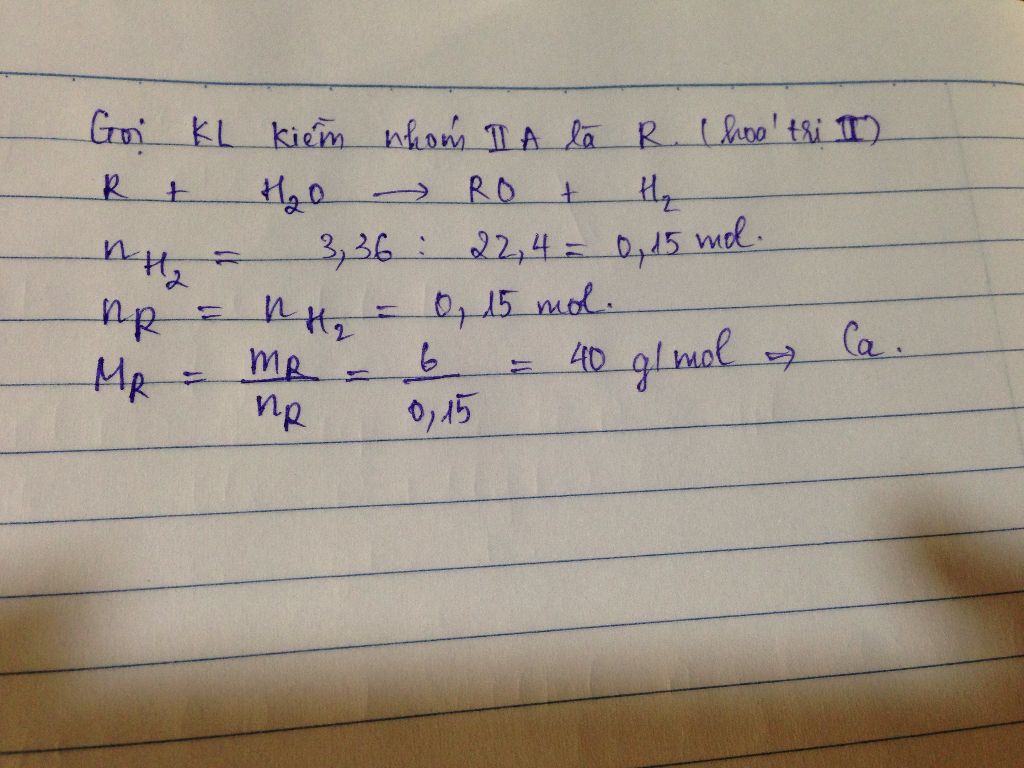 Gọi KL kiềm nhóm IIA là R. (hoá trị II)
R + H₂O → RO + H₂
n_H₂ = 3,36 : 22,4 = 0,15 mol.
n_R = n_H₂ = 0,15 mol.
M_R = m_R / n_R = 6 / 0,15 = 40 g/mol ⇒ Ca.